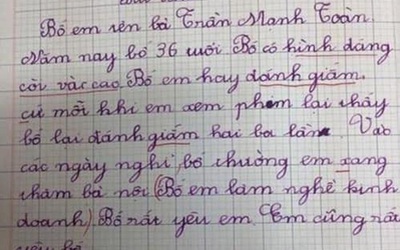 Bố em tên bà Trần Mạnh Toàn.
Năm nay bố 36 tuổi Bố có hình dáng
còi và cao. Bố em hay đánh giấm.
cứ mỗi khi em xem phim lại thấy
bố lại đánh giấm hai ba lần. Vào
các ngày nghỉ bố thường em xang
thăm bà nội (Bố em làm nghề kinh
doanh). Bố rất yêu em. Em cũng rất
yêu bố